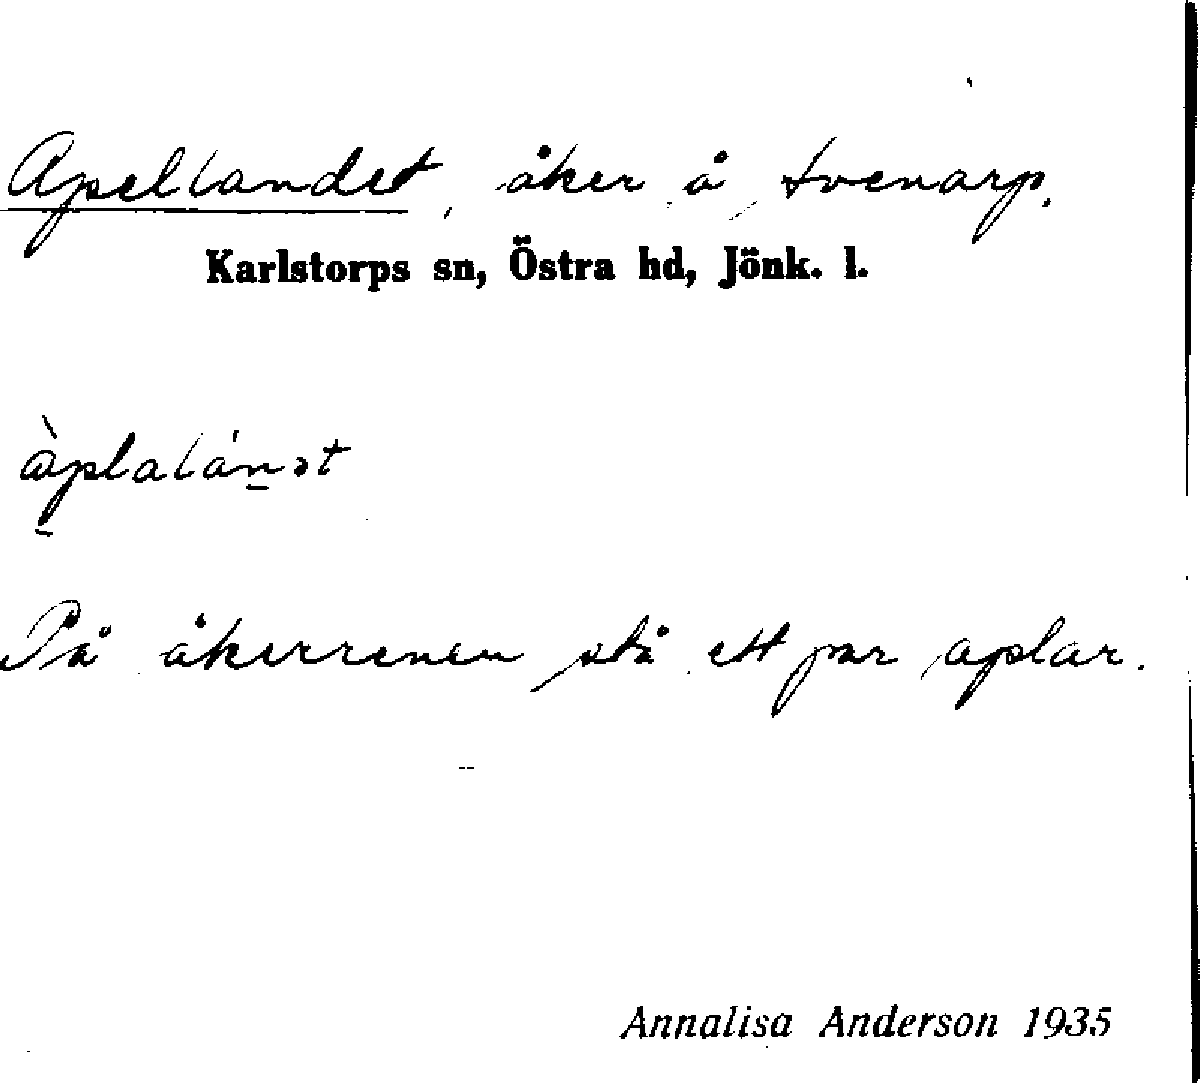 Apellandet, åker å Svenarp.
Karlstorps sn, Östra hd, Jönk. l.
àplalánət
På åkerrenen stå ett par aplar.
Annalisa Anderson 1935